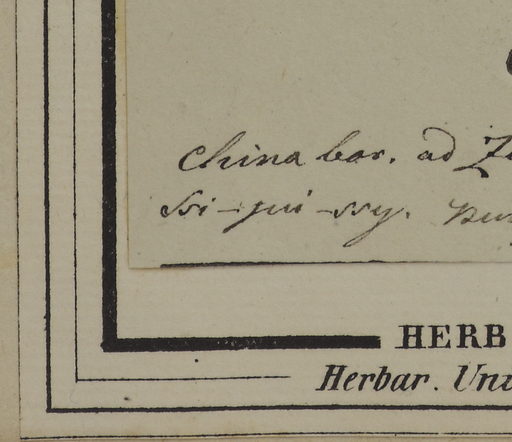 China bor. ad
Si-jui-ssy.
HERB
Herbar. Univ